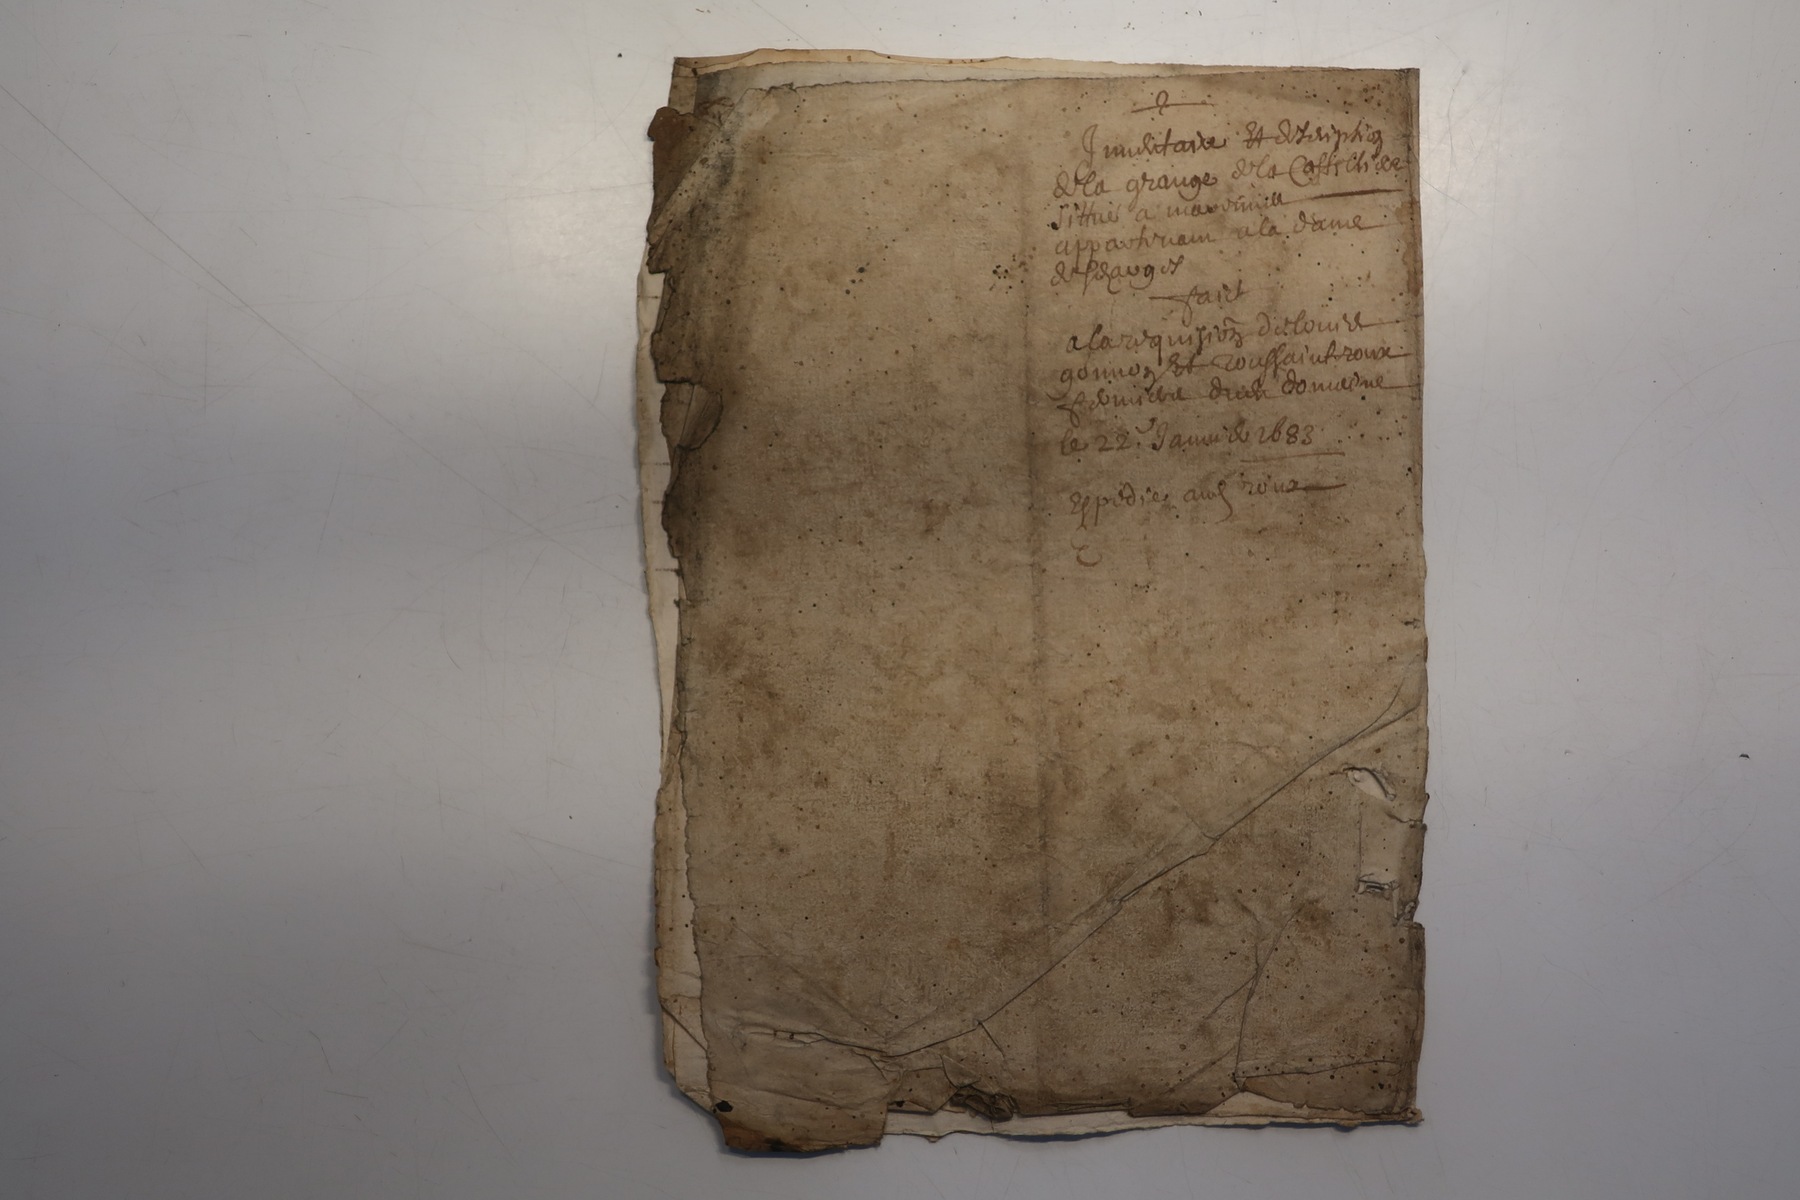 Inventaire Et description
de la grange de la Castelide
sittuee a
appartenam a la dame
de
faict
a la requision de louis
gonnon Et toussainct roux
fermiers dudit domaine
le 22e Januie 1683
Expedie aud roux